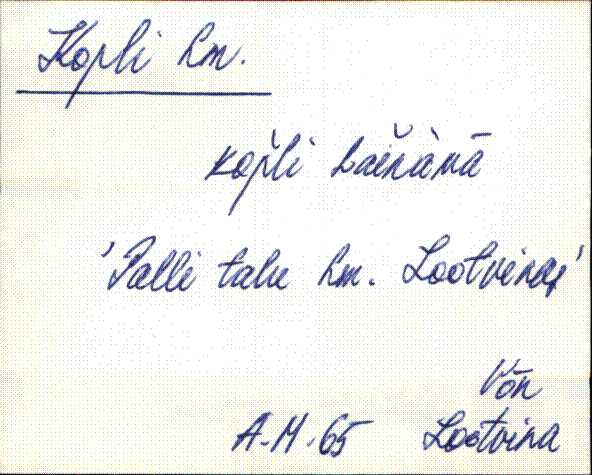 Kopli hm.
kop̀li haěnàmā
'Palli talu hm. Lootvinas'
Võn
A.M.65 Lootvina